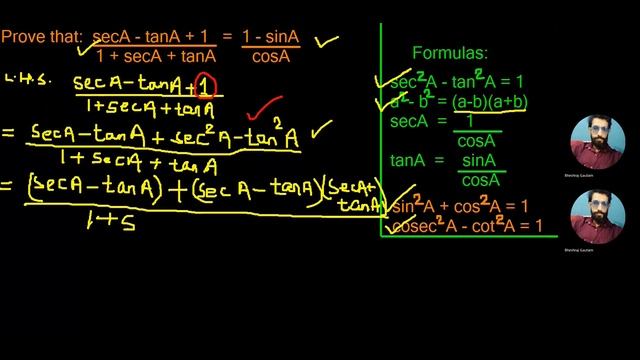 Prove that: secA - tanA + 1 / 1 + secA + tanA = 1 - sinA / cosA
L.H.S. secA - tanA + 1 / 1 + secA + tanA
= secA - tanA + sec²A - tan²A / 1 + secA + tanA
= (secA - tanA) + (secA - tanA)(secA + tanA) / 1 + s
Formulas:
sec²A - tan²A = 1
a² - b² = (a-b)(a+b)
secA = 1 / cosA
tanA = sinA / cosA
sin²A + cos²A = 1
cosec²A - cot²A = 1
Bheshraj Gautam
Bheshraj Gautam